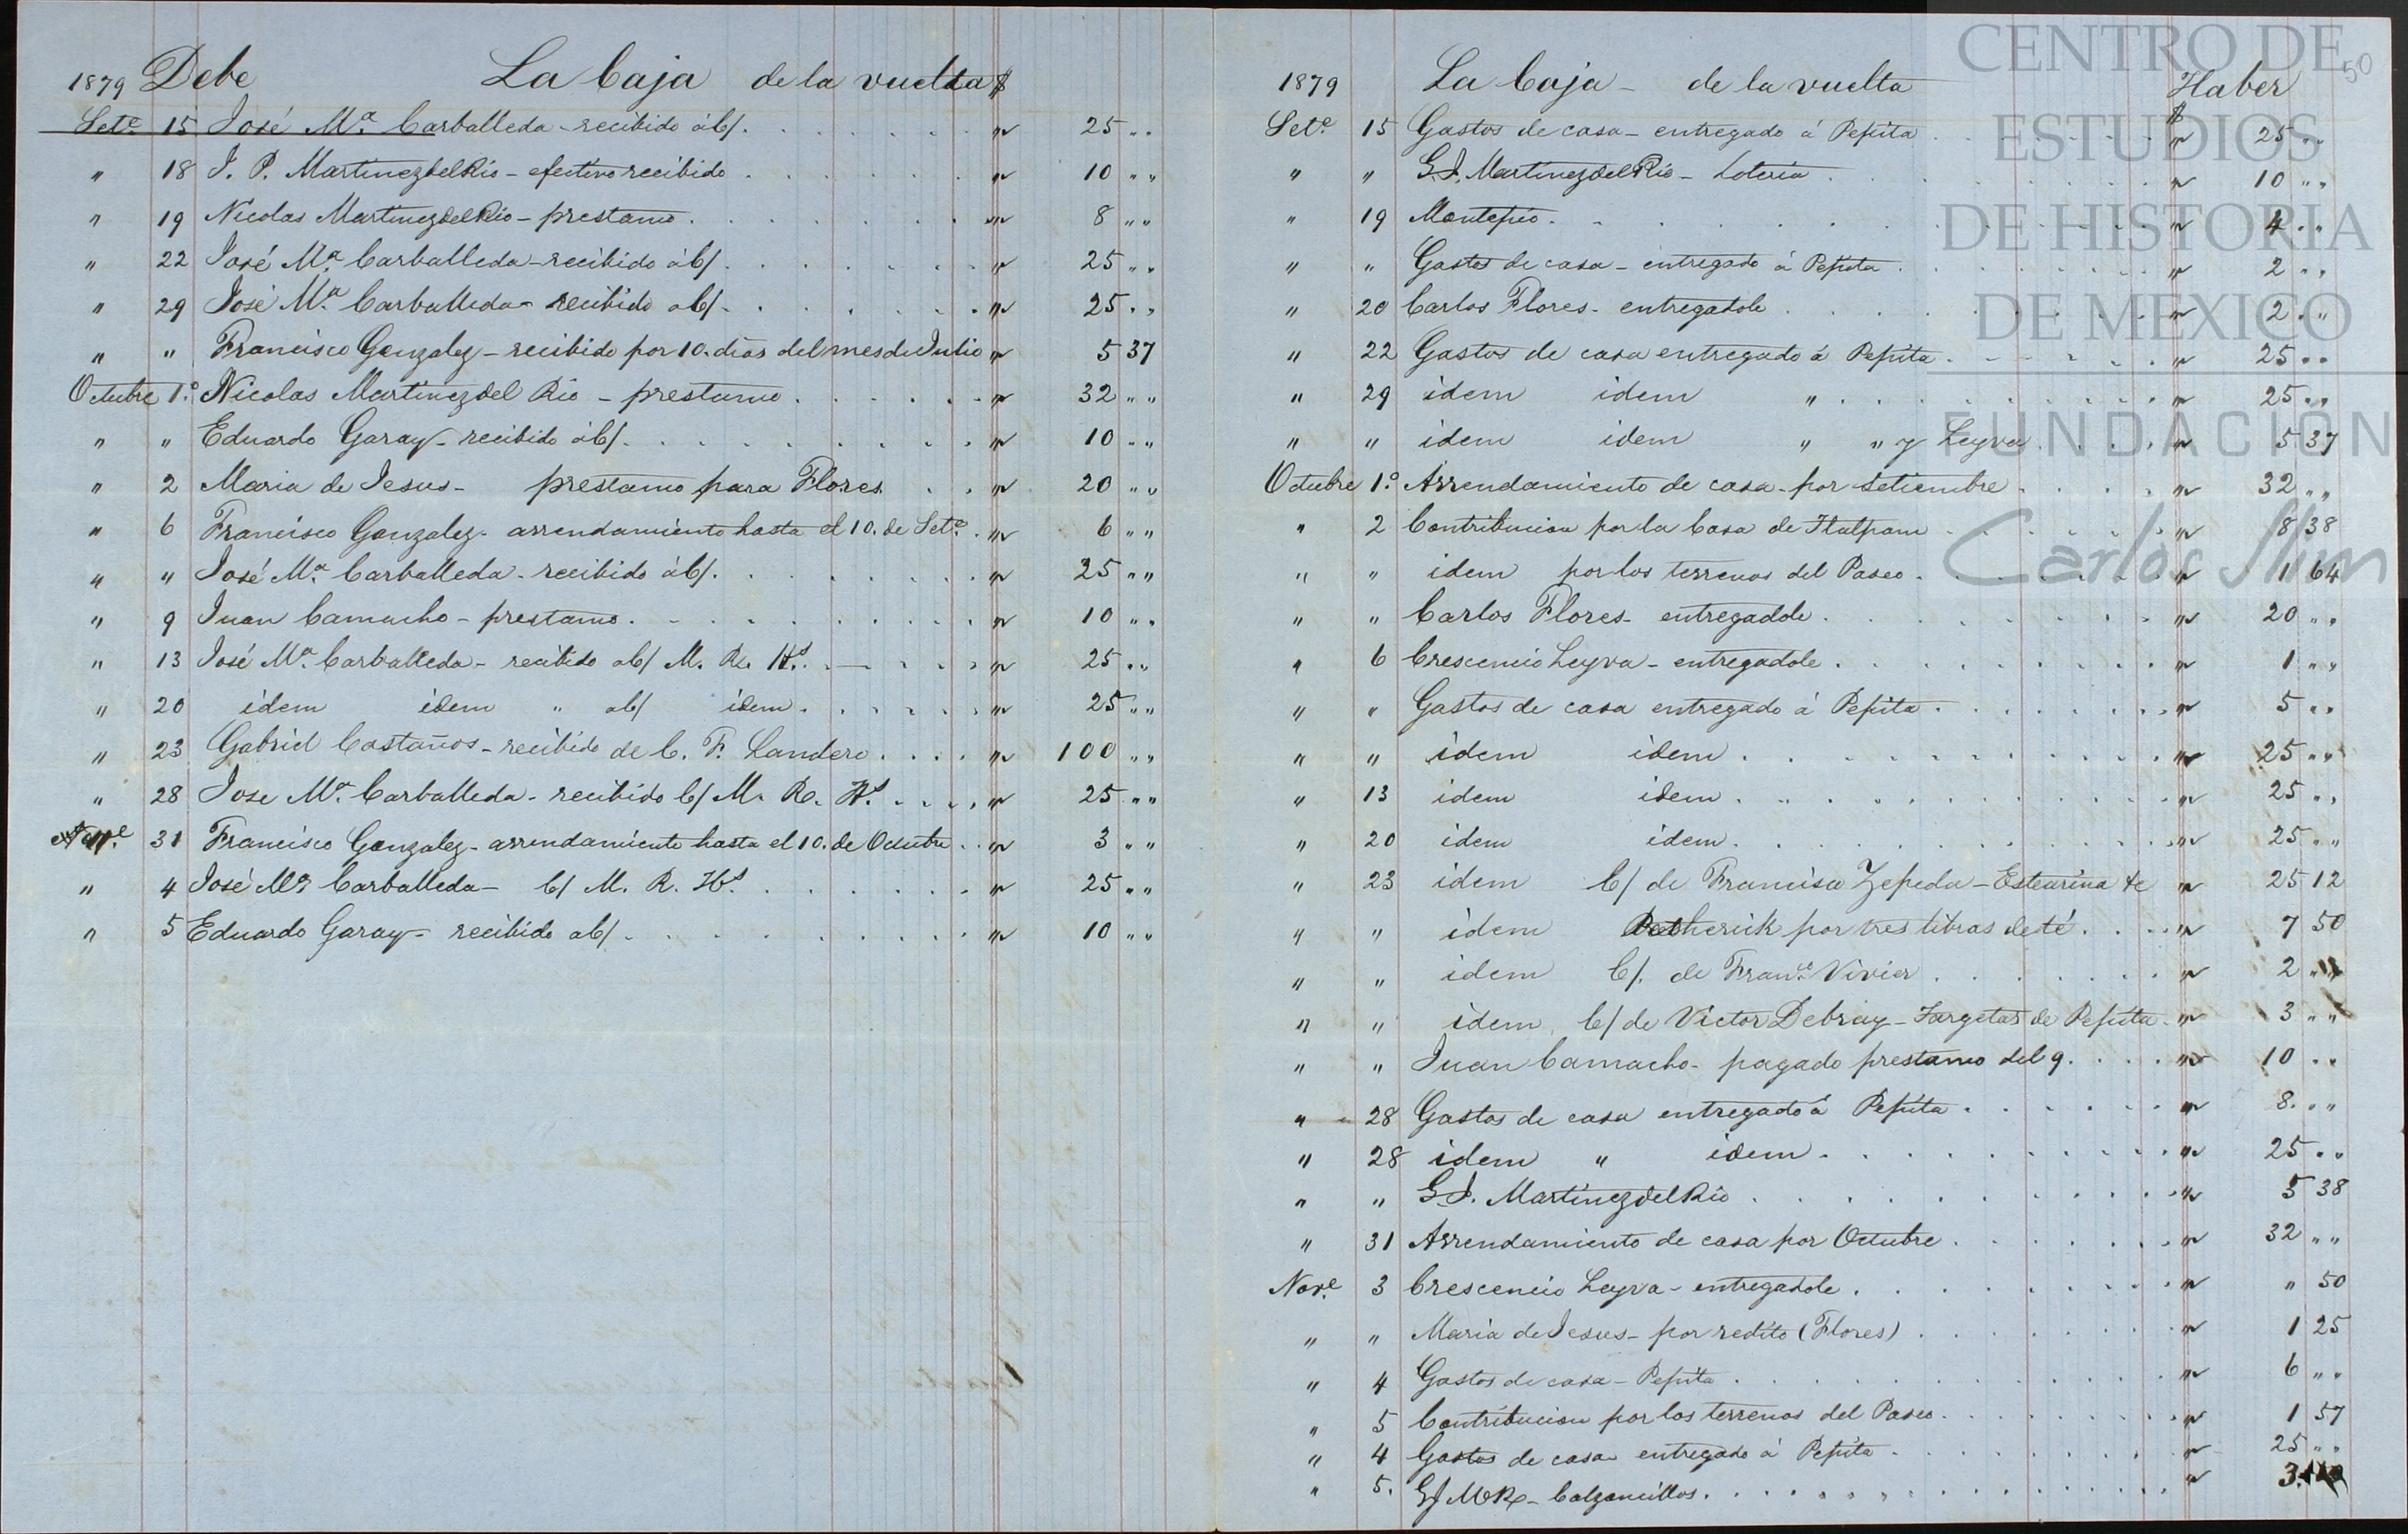 1879 Debe La Caja de la vuelta $
Sete. 15 José Ma. Carballeda - recibido á c/ . . . . . . . . " 25 " "
" 18 J. P. Martinez del Rio - efectivo recibido . . . . . . " 10 " "
" 19 Nicolas Martinez del Rio - prestamo . . . . . . . " 8 " "
" 22 José Ma. Carballeda - recibido á c/ . . . . . . . " 25 " "
" 29 José Ma. Carballeda - recibido a c/ . . . . . . . " 25 " "
" " Francisco Gonzalez - recibido por 10. dias del mes de Julio " 5 37
Octubre 1.º Nicolas Martinez del Rio - prestamo . . . . . . " 32 " "
" " Eduardo Garay - recibido á c/ . . . . . . . . . " 10 " "
" 2 Maria de Jesus - prestamo para Flores . . " 20 " "
" 6 Francisco Gonzalez - arrendamiento hasta el 10. de Sete. . " 6 " "
" " José Ma. Carballeda - recibido á c/ . . . . . . . . " 25 " "
" 9 Juan Camacho - prestamo . . . . . . . . . . " 10 " "
" 13 José Ma. Carballeda - recibido a c/ M. R. Hs. . . . . . " 25 " "
" 20 idem idem " a c/ idem . . . . . . " 25 " "
" 23 Gabriel Castaños - recibido de C. F. Landero . . . . " 100 " "
" 28 Jose Ma. Carballeda - recibido C/ M. R. Hs. . . . . " 25 " "
Nove. 31 Francisco Gonzalez - arrendamiento hasta el 10. de Octubre . . " 3 " "
" 4 José Ma. Carballeda - C/ M. R. Hs. . . . . . . . " 25 " "
" 5 Eduardo Garay - recibido a c/ . . . . . . . . . " 10 " "
1879 La Caja - de la vuelta Haber 50
$
Sete. 15 Gastos de casa - entregado á Pepita . . . . . . " 25 " "
" " G. J. Martinez del Rio - Loteria . . . . . . . . " 10 " "
" 19 Montepio . . . . . . . . . . . . " 4 " "
" " Gastos de casa - entregado á Pepita . . . . . . . " 2 " "
" 20 Carlos Flores - entregadole . . . . . . . . . " 2 " "
" 22 Gastos de casa entregado á Pepita . . . . . . " 25 " "
" 29 idem idem " . . . . . . . . . " 25 " "
" " idem idem " " y Leyva . . . . " 5 37
Octubre 1.º Arrendamiento de casa - por Setiembre . . . . " 32 " "
" 2 Contribucion por la Casa de Tlalpam . . . . . . " 8 38
" " idem por los terrenos del Paseo . . . . . . . " 1 64
" " Carlos Flores - entregadole . . . . . . . . " 20 " "
" 6 Crescencio Leyva - entregadole . . . . . . . . " 1 " "
" " Gastos de casa entregado á Pepita . . . . . . . " 5 " "
" " idem idem . . . . . . . . . . . " 25 " "
" 13 idem idem . . . . . . . . . . . " 25 " "
" 20 idem idem . . . . . . . . . . . " 25 " "
" 23 idem C/ de Francisco Zepeda - Estearina &c " 25 12
" " idem Petherick por tres libras de té . . . . " 7 50
" " idem C/. de Franco. Vivier . . . . . . . " 2 " "
" " idem C/ de Victor Debray - Targetas de Pepita . " 3 " "
" " Juan Camacho - pagado prestamo del 9 . . . . " 10 " "
" 28 Gastos de casa entregado á Pepita . . . . . . " 8 " "
" 28 idem " idem . . . . . . . . . . " 25 " "
" " G. J. Martinez del Rio . . . . . . . . . . . " 5 38
" 31 Arrendamiento de casa por Octubre . . . . . . " 32 " "
Nove. 3 Crescencio Leyva - entregadole . . . . . . . . " " 50
" " Maria de Jesus - por redito (Flores) . . . . . . . " 1 25
" 4 Gastos de casa - Pepita . . . . . . . . . . . " 6 " "
" 5 Contribucion por los terrenos del Paseo . . . . . . . " 1 57
" 4 Gastos de casa entregado á Pepita . . . . . . . . " 25 " "
" 5. GJ MdR - Calzoncillos . . . . . . . . . . . . " 3
CENTRO DE
ESTUDIOS
DE HISTORIA
DE MEXICO
FUNDACIÓN
Carlos Slim